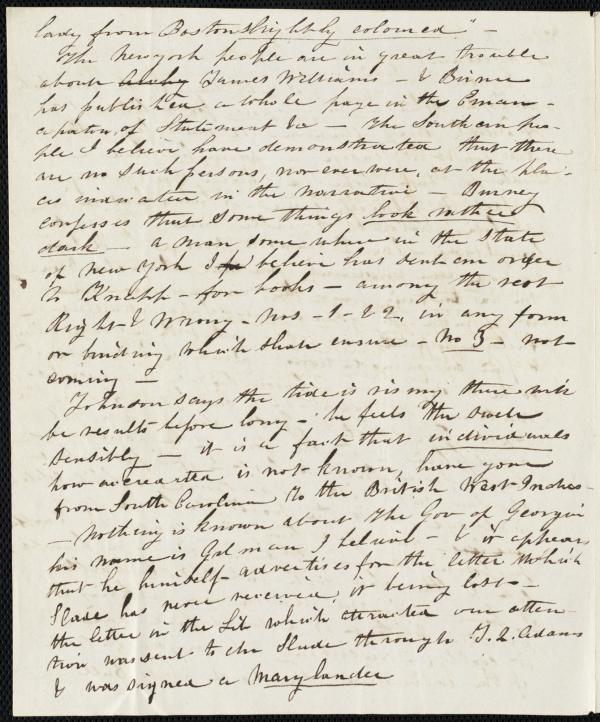 lady from Boston slightly colored" —
The New York people are in great trouble
about James Williams — & Birney
has published a whole page in the Eman-
cipator, of Statement &c — The Southern peo-
ple I believe have demonstrated that there
are no such persons, nor ever were, at the pla-
ces indicated in the narrative — Burney
confesses that some things look rather
dark — a man some where in the State
of New York I believe has sent an order
to Knapp — for books — among the rest
Right & Wrong — Nos — 1 — & 2, in any form
or binding which shall ensure — No 3 — not
coming —
Johnson says the tide is rising there will
be results before long — he feels the swell
sensibly — it is a fact that individuals
how accredited is not known, have gone
from South Carolina to the British West Indies
— Nothing is known about the Gov of Georgia
his name is Gilman I believe — & it appears
that he himself advertises for the letter which
Slade has never received, it being lost —
the letter in the Lib which attracted our atten-
tion was sent to the Slade through J. Q. Adams
& was signed a Marylander